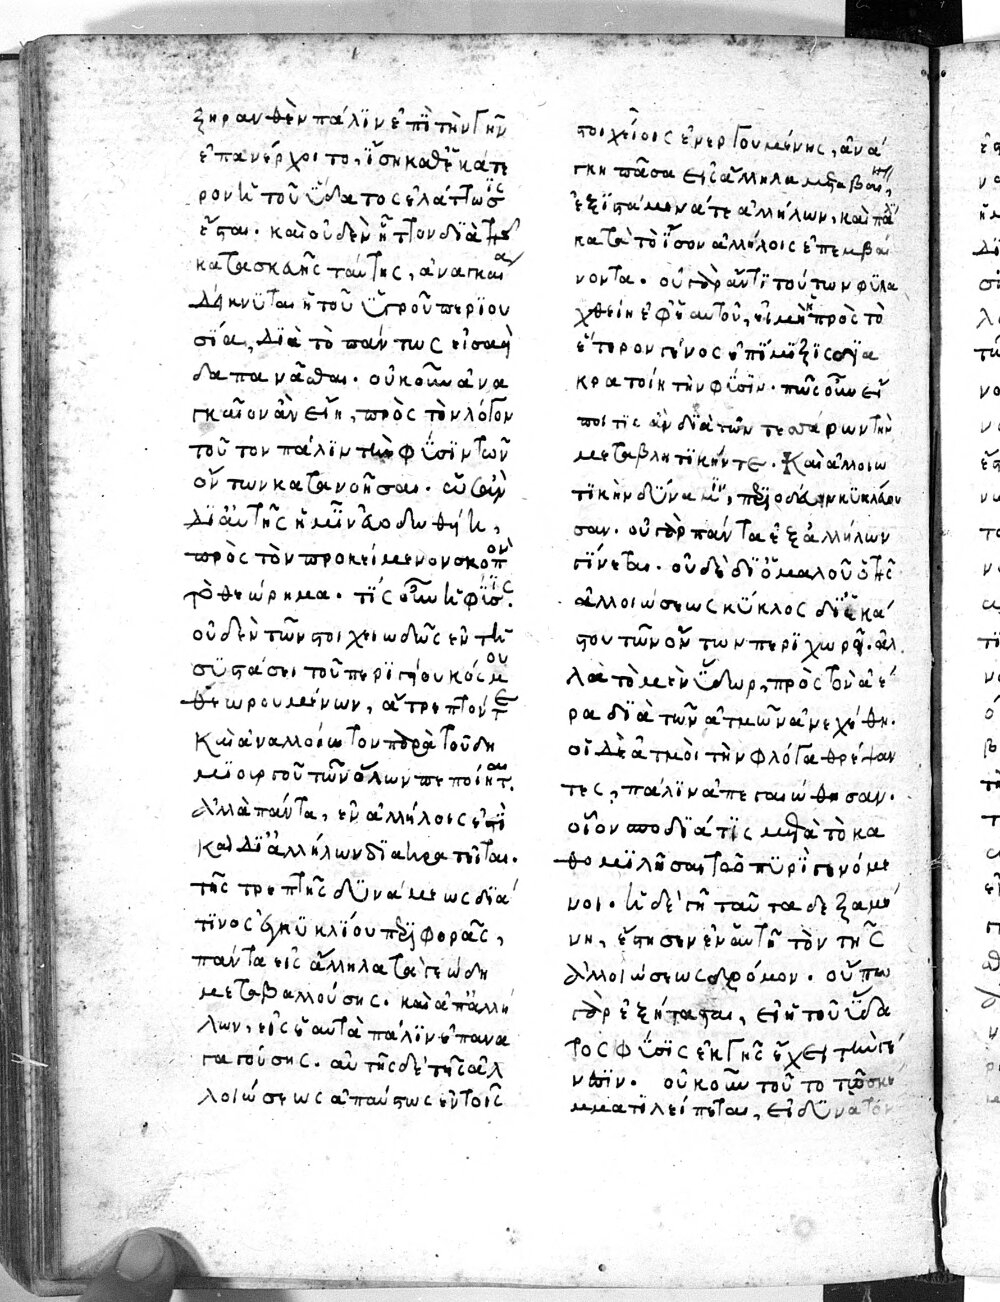 ξηρανθὲν πάλιν ἐπὶ τὴν γῆν
ἐπανέρχοιτο, ἴση καθ' ἑκάτε
ρον ἡ τοῦ ὕδατος ἐλάττωσις
ἔσται. καὶ οὐδὲν ἧττον διὰ τῆς
κατασκευῆς ταύτης, ἀναγκαία
δείκνυται ἡ τοῦ ὑγροῦ περιου
σία, διὰ τὸ πάντως εἰσαεὶ
δαπανᾶσθαι. οὐκοῦν ἀνα
γκαῖον ἂν εἴη, πρὸς τὸν λόγον
τοῦτον πάλιν τὴν φύσιν τῶν
ὄντων κατανοῆσαι.
δι' αὐτῆς ἡμῖν ὁδωθείη,
πρὸς τὸν προκείμενον σκοπὸν
τὸ θεώρημα. τίς οὖν ἡ φύσις.
οὐδὲν τῶν στοιχειωδῶς ἐν τῇ
συστάσει τοῦ περιγείου κόσμου
θεωρουμένων, ἄτρεπτόν τε
καὶ ἀναλλοίωτον παρὰ τοῦ δη
μιουργοῦ τῶν ὅλων πεποίηται.
ἀλλὰ πάντα, ἐν ἀλλήλοις ἐστὶ
καὶ δι' ἀλλήλων διακρατεῖται.
τῆς τρεπτῆς δυνάμεως διά
τινος ἐγκυκλίου περιφορᾶς,
πάντα εἰς ἄλληλα τὰ γεώδη
μεταβαλλούσης. καὶ ἀπ' ἀλλή
λων, εἰς ἑαυτὰ πάλιν ἐπανα
γαγούσης. αὐτῆς δὲ τῆς ἀλ
λοιώσεως ἀπαύστως ἐν τοῖς
στοιχείοις ἐνεργουμένης, ἀνά
γκη πᾶσα εἰς ἄλληλα μεταβαίνειν,
ἐξιστάμενά τε ἀλλήλων, καὶ πάλιν
κατὰ τὸ ἴσον ἀλλήλοις ἐπεμβαί
νοντα. οὐ γὰρ ἄν τι τούτων φυλα
χθείη ἐφ' ἑαυτοῦ, εἰ μὴ ἡ πρὸς τὸ
ἕτερον γένος ἐπιμιξία
κρατοίη τὴν φύσιν. πῶς οὖν εἴ
ποι τις ἂν διὰ τῶν τεσσάρων τὴν
μεταβλητικήν τε. καὶ ἀλλοιω
τικὴν δύναμιν, περιοδικῶς κυκλεύου
σαν. οὐ γὰρ πάντα ἐξ ἀλλήλων
γίνεται. οὐδὲ δι' ὁμαλοῦ ὁ τῆς
ἀλλοιώσεως κύκλος δι' ἑκά
στου τῶν ὄντων περιχωρεῖ. ἀλ
λὰ τὸ μὲν ὕδωρ, πρὸς τὸν ἀέ
ρα διὰ τῶν ἀτμῶν ἀνεχέθη.
οἱ δὲ ἀτμοὶ τὴν φλόγα θρέψαν
τες, πάλιν ἀπεγαιώθησαν.
οἷον σποδιά τις μετὰ τὸ κα
θομιλῆσαι τῷ πυρὶ γενόμε
νοι. ἡ δὲ γῆ ταῦτα δεξαμέ
νη, ἔστησεν ἐν αὐτῇ τὸν τῆς
ἀλλοιώσεως δρόμον. οὔπω
γὰρ ἐξήτασται, εἰ ἡ τοῦ ὕδα
τος φύσις ἐκ γῆς ἔχει τὴν γέ
νεσιν. οὐκοῦν τοῦτο τῷ σκέ
μματι λείπεται, εἰ δυνατόν